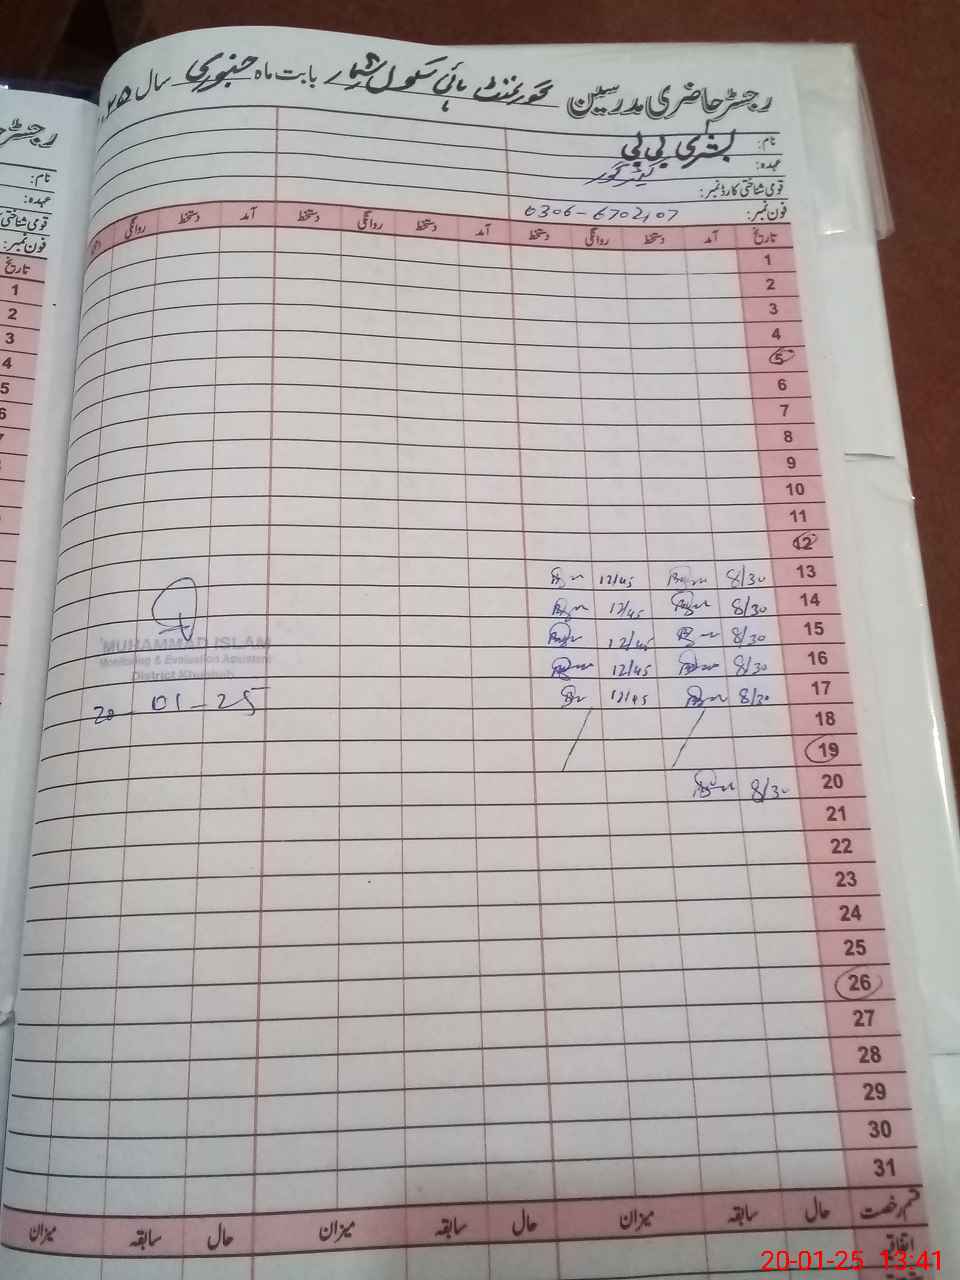 رجسٹر حاضری مدرسین گورنمنٹ ہائی سکول بابت ماہ جنوری سال ۲۵
نام: بشریٰ بی بی
عہدہ: کیئر گور
قومی شناختی کارڈ نمبر:
فون نمبر: 0306-6702107
تاریخ آمد دستخط روانگی دستخط آمد دستخط روانگی دستخط آمد دستخط روانگی
1
2
3
4
5
6
7
8
9
10
11
12
13 8/30 12/45
14 8/30 12/45
15 8/30 12/45
16 8/30 12/45
17 8/30 12/45
18
19
20 8/30
21
22
23
24
25
26
27
28
29
30
31
MUHAMMAD ISLAM
Monitoring & Evaluation Assistant
District Khushab
20-01-25
قسم رخصت حال سابقہ میزان حال سابقہ میزان حال سابقہ میزان
اتفاقی
رجسٹر
نام:
عہدہ:
قومی شناختی کا
فون نمبر:
تاریخ
1
2
3
4
5
6
20-01-25 13:41